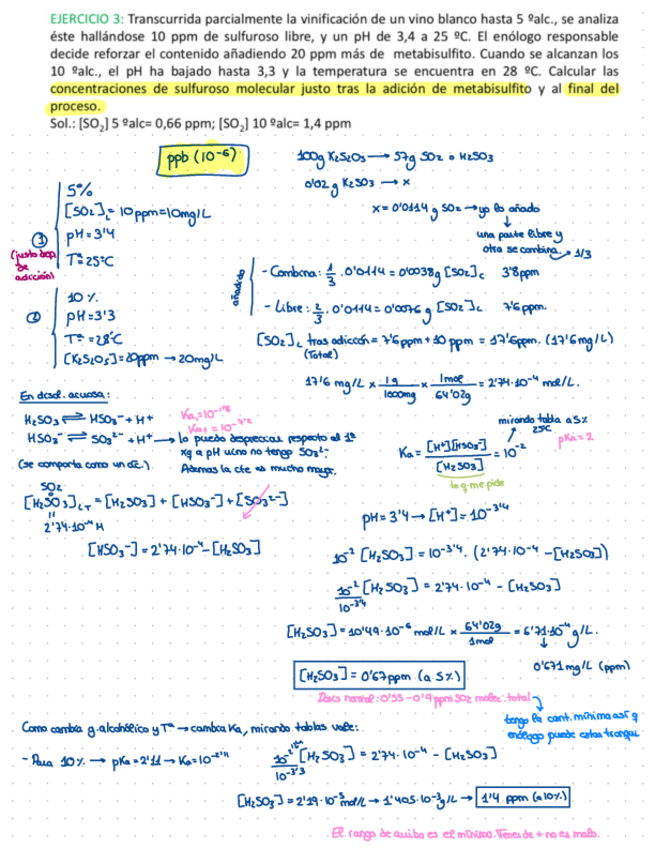 EJERCICIO 3: Transcurrida parcialmente la vinificación de un vino blanco hasta 5 ºalc., se analiza
éste hallándose 10 ppm de sulfuroso libre, y un pH de 3,4 a 25 ºC. El enólogo responsable
decide reforzar el contenido añadiendo 20 ppm más de metabisulfito. Cuando se alcanzan los
10 ºalc., el pH ha bajado hasta 3,3 y la temperatura se encuentra en 28 ºC. Calcular las
concentraciones de sulfuroso molecular justo tras la adición de metabisulfito y al final del
proceso.
Sol.: [SO₂] 5 ºalc= 0,66 ppm; [SO₂] 10 ºalc= 1,4 ppm
ppb (10⁻⁶)
100g K₂S₂O₅ → 57g SO₂ o H₂SO₃
0'02 g K₂SO₃ → x
x = 0'0114 g SO₂ → yo lo añado
una parte libre y
otra se combina. → 1/3
①
(justo dsp
de
adición)
5%
[SO₂]L = 10ppm = 10mg/L
pH = 3'4
Tª = 25ºC
②
10 %.
pH = 3'3
Tª = 28ºC
[K₂S₂O₅] = 20ppm → 20mg/L
añadido
- Combina: 1/3 · 0'0114 = 0'0038g [SO₂]c 3'8ppm
- Libre: 2/3 · 0'0114 = 0'0076 g [SO₂]L 7'6ppm.
[SO₂]L tras adición = 7'6ppm + 10 ppm = 17'6ppm. (17'6mg/L)
(Total)
17'6 mg/L × 1g/1000mg × 1mol/64'02g = 2'74·10⁻⁴ mol/L.
En disol. acuosa:
H₂SO₃ ⇌ HSO₃⁻ + H⁺ Ka₁=10⁻¹'⁸
HSO₃⁻ ⇌ SO₃²⁻ + H⁺ → lo puedo despreciar respecto al 1º Ka₂=10⁻⁷'²
xq a pH vino no tengo SO₃²⁻
(se comporta como un ác.) Además la cte es mucho mayor.
mirando tabla a 5%
25ºC
pKa = 2
Ka = [H⁺][HSO₃⁻]/[H₂SO₃] = 10⁻²
lo q me pide
SO₂
[H₂SO₃]LT = [H₂SO₃] + [HSO₃⁻] + [SO₃²⁻]
"
2'74·10⁻⁴ M
[HSO₃⁻] = 2'74·10⁻⁴ - [H₂SO₃]
pH = 3'4 → [H⁺] = 10⁻³'⁴
10⁻² [H₂SO₃] = 10⁻³'⁴ · (2'74·10⁻⁴ - [H₂SO₃])
10⁻²/10⁻³'⁴ [H₂SO₃] = 2'74·10⁻⁴ - [H₂SO₃]
[H₂SO₃] = 10'49·10⁻⁶ mol/L × 64'02g/1mol = 6'71·10⁻⁴ g/L.
0'671 mg/L (ppm)
[H₂SO₃] = 0'67ppm (a 5%)
Dosis normal: 0'55 - 0'9 ppm SO₂ molec. total
tengo la cant. mínima así q
enólogo puede estar tranqui
Como cambia g. alcohólico y Tª → cambia Ka, mirando tablas vale:
- Para 10% → pKa = 2'11 → Ka = 10⁻²'¹¹
10⁻²'¹¹/10⁻³'³ [H₂SO₃] = 2'74·10⁻⁴ - [H₂SO₃]
[H₂SO₃] = 2'19·10⁻⁵ mol/L → 1'405·10⁻³ g/L → 1'4 ppm (a 10%)
El rango de arriba es el mínimo. Tener de + no es malo.